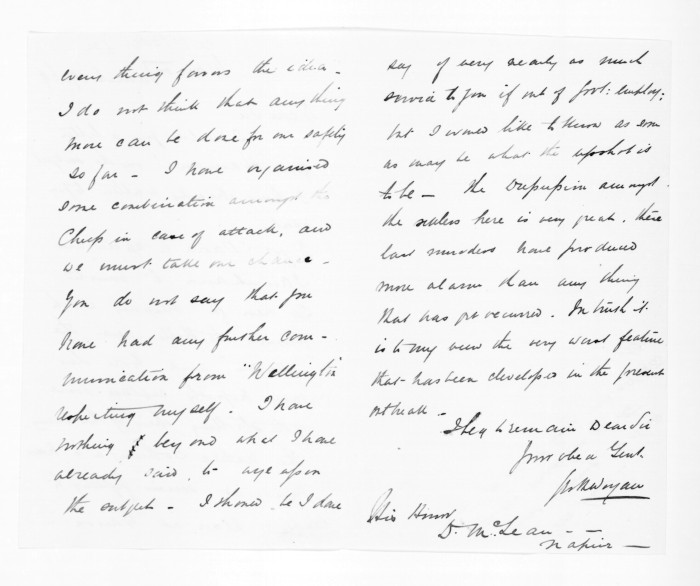 every thing favors the idea -
I do not think that any thing
more can be done for our safety
so far - I have organised
some combination amongst the
Chiefs in case of attack, and
we must take our chance -
You do not say that you
have had any further com-
munication from "Wellington"
respecting myself. I have
nothing beyond what I have
already said, to urge upon
the subject - I should be I dare
say of very nearly as much
service to you if out of Govt: employ;
but I would like to know as soon
as may be what the upshot is
to be - the Depression amongst
the settlers here is very great, these
last murders have produced
more alarm than any thing
that has yet occurred. In truth it
is to my view the very worst feature
that has been developed in the present
outbreak -
I beg to remain Dear Sir
Your obed Servt
His Honor
D. McLean - -
Napier -